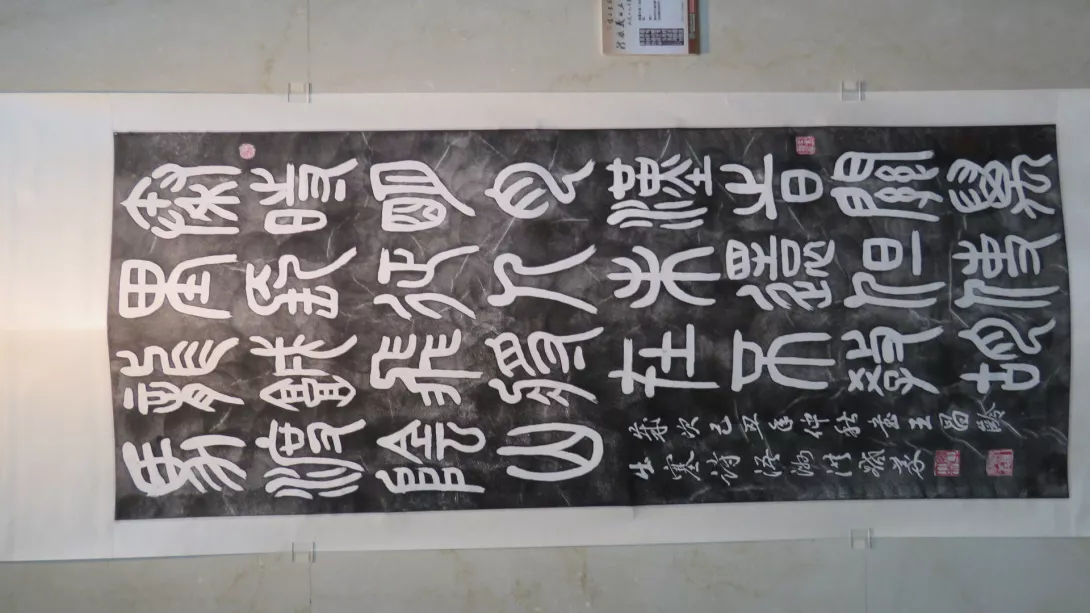 秦時明月漢旹關萬
里長征人未還但使
龍城飛將在不教胡
馬渡陰山
歲次己丑年仲秋書王昌齡
出塞詩